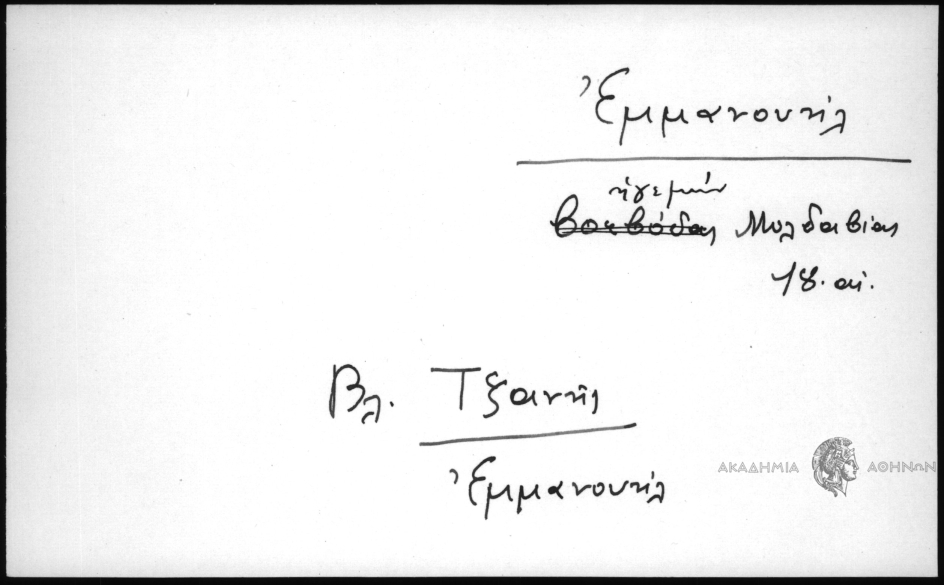 Ἐμμανουήλ
ἡγεμών
βοεβόδας Μολδαβίας
18. αἰ.
Βλ. Τζανῆς
Ἐμμανουήλ
ΑΚΑΔΗΜΙΑ ΑΘΗΝΩΝ